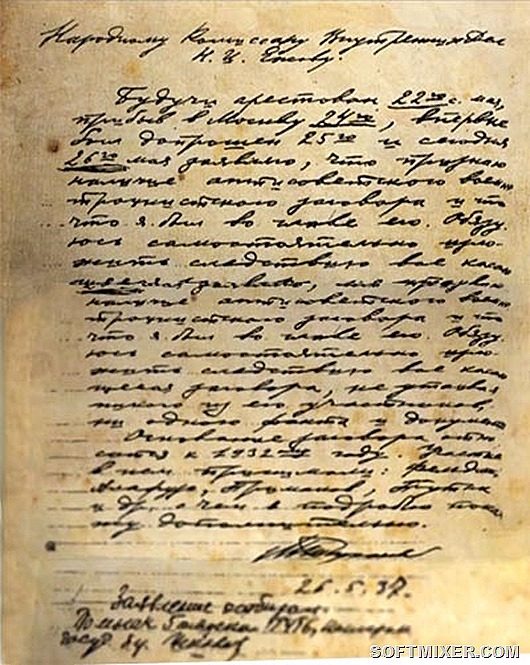 Народному Комиссару Внутренних Дел
Н. И. Ежову.
Будучи арестован 22го с. мая,
прибыв в Москву 24го, впервые
был допрошен 25го и сегодня
26го мая заявляю, что признаю
наличие антисоветского военно
троцкистского заговора и то
что я был во главе его. Обязу
юсь самостоятельно изло
жить следствию все касаю
заявляю, что признаю
наличие антисоветского военно
троцкистского заговора и то
что я был во главе его. Обязу
юсь самостоятельно изло
жить следствию все касаю
щееся заговора, не утаивая
никого из его участников,
ни одного факта и документа
Основание заговора отно
сится к 1932му году. Участие
в нем принимали: Фельдман,
Алафузо, Примаков, Путна
и др., о чем я подробно пока
жу дополнительно.
26.5.37.
Заявление отобрал
Пом. нач. 5 отдела ГУГБ, капитан
госуд. бу. Ушаков
SOFTMIXER.COM